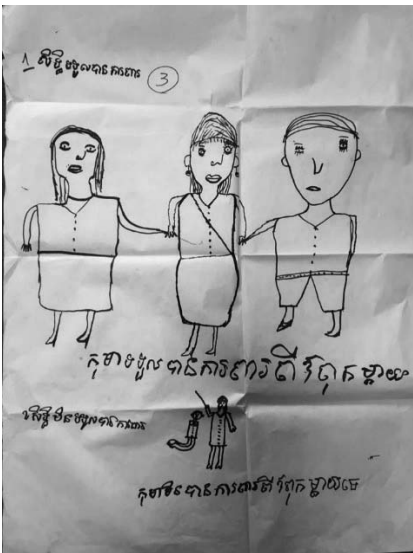 1 សិទ្ធិទទួលបានការពារ ③
កុមារទទួលបានការពារពីឪពុកម្ដាយ
២ សិទ្ធិមិនទទួលបានការពារ
កុមារមិនបានការពារពីឪពុកម្ដាយទេ